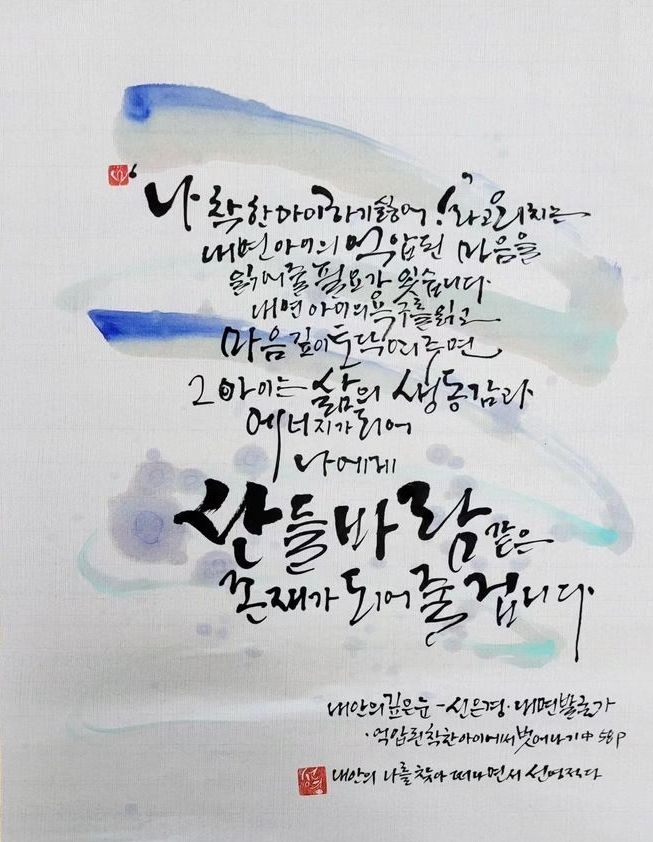 '나 착한아이하기싫어!'라고외치는
내면아이의 억압된 마음을
읽어줄필요가 있습니다.
내면아이의욕구를읽고
마음깊이토닥여주면
그아이는 삶의 생동감과
에너지가되어
나에게
산들바람같은
존재가 되어줄겁니다.
내안의깊은눈-신은경·내면발굴가
·억압된착한아이에서벗어나기中 58P
내안의 나를찾아 떠나면서 선영적다